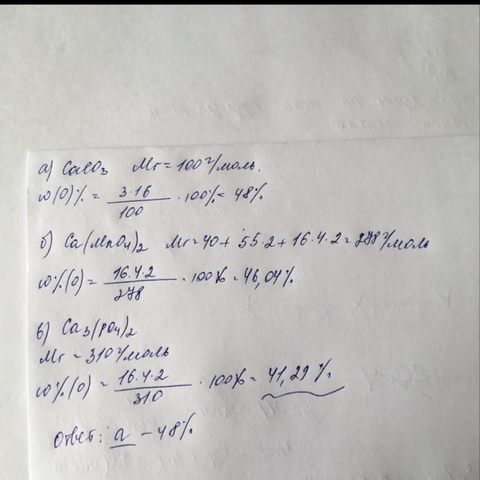 а) CaCO3 Mr = 100 г/моль.
w(O)% = 3·16 / 100 · 100% = 48%
б) Ca(MnO4)2 Mr = 40 + 55·2 + 16·4·2 = 278 г/моль
w%(O) = 16·4·2 / 278 · 100% = 46,04%
в) Ca3(PO4)2
Mr = 310 г/моль
w%(O) = 16·4·2 / 310 · 100% = 41,29%
Ответ: а – 48%